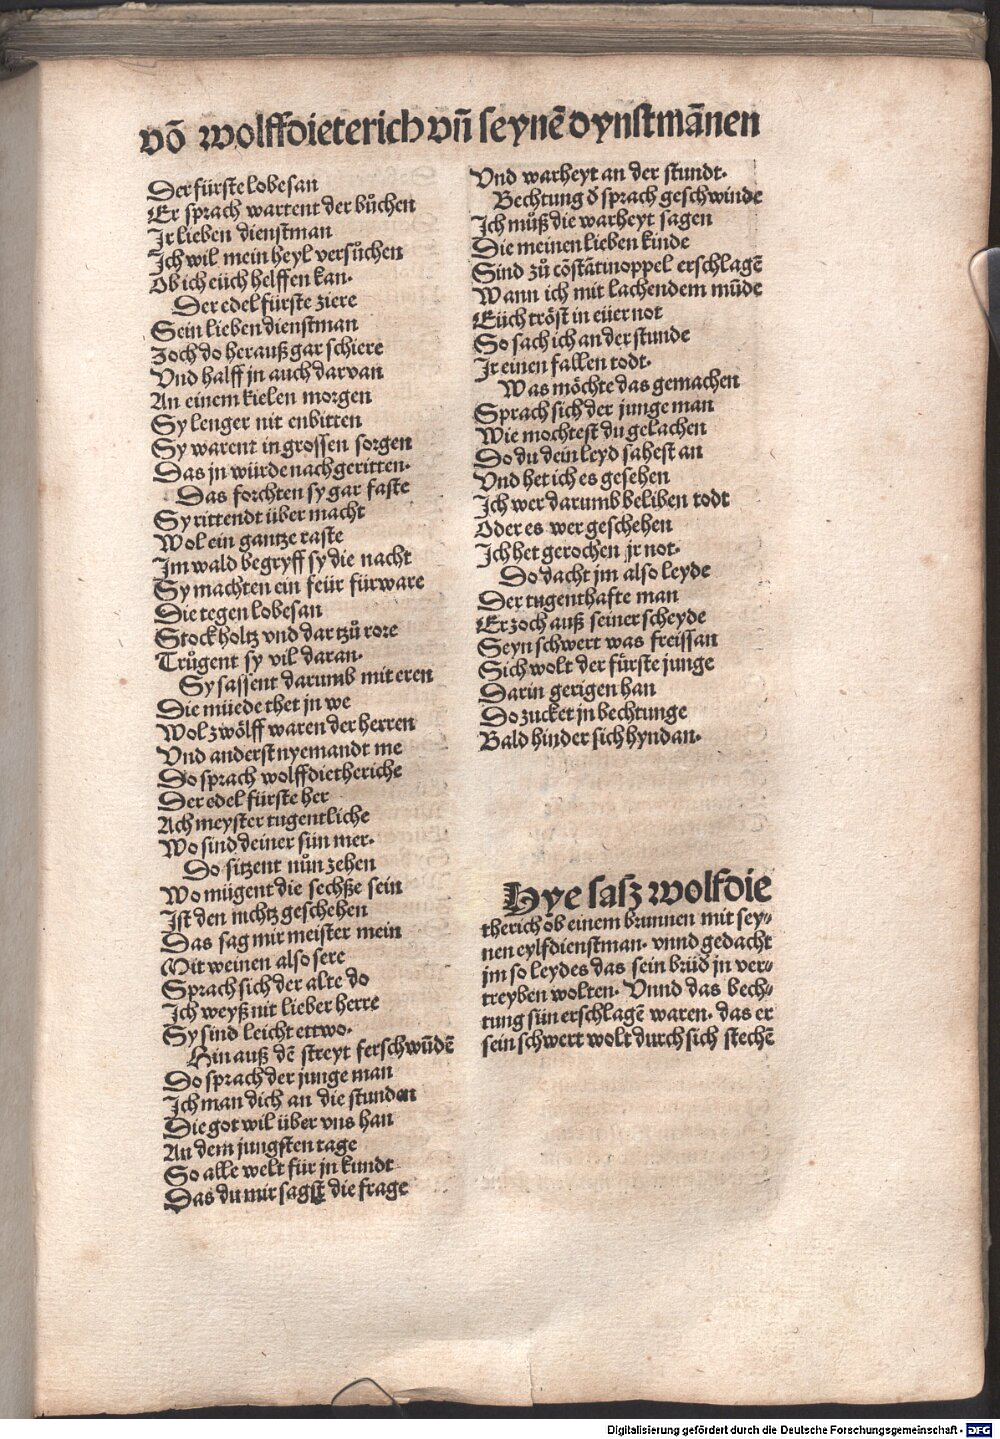 võ wolffdieterich vñ seynẽ dynstmãnen
Der fürste lobesan
Er sprach wartent der bůchen
Ir lieben dienstman
Ich wil mein heyl versůchen
Ob ich eüch helffen kan.
Der edel fürste ziere
Sein lieben dienstman
Zoch do herauß gar schiere
Vnd halff jn auch darvan
An einem kielen morgen
Sy lenger nit enbitten
Sy warent in grossen sorgen
Das jn würde nach geritten.
Das forchten sy gar faste
Sy rittendt über macht
Wol ein gantze raste
Im wald begryff sy die nacht
Sy machten ein feür fürware
Die tegen lobesan
Stock holtz vnd dar tzů rore
Trůgent sy vil daran.
Sy sassent darumb mit eren
Die müede thet jn we
Wol zwölff waren der herren
Vnd anderst nyemandt me
Do sprach wolffdietheriche
Der edel fürste her
Ach meyster tugentliche
Wo sind deiner sün mer.
Do sitzent nůn zehen
Wo mügent die sechße sein
Ist den nichtz geschehen
Das sag mir meister mein
Mit weinen also sere
Sprach sich der alte do
Ich weyß nit lieber herre
Sy sind leicht ettwo.
Hin auß dẽ streyt ferschwũdẽ
Do sprach der junge man
Ich man dich an die stunden
Die got wil über vns han
An dem jungsten tage
So alle welt für jn kundt
Das du mir sagst die frage
Vnd warheyt an der stundt.
Bechtung đ sprach geschwinde
Ich můß die warheyt sagen
Die meinen lieben kinde
Sind zů cõstãtinoppel erschlagẽ
Wann ich mit lachendem mũde
Eüch tröst in eüer not
So sach ich an der stunde
Ir einen fallen todt.
Was möchte das gemachen
Sprach sich der junge man
Wie mochtest du gelachen
Do du dein leyd sahest an
Vnd het ich es gesehen
Ich wer darumb beliben todt
Oder es wer geschehen
Ich het gerochen jr not.
Do dacht jm also leyde
Der tugenthafte man
Er zoch auß seiner scheyde
Seyn schwert was freissan
Sich wolt der fürste junge
Darin gerigen han
Do zucket jn bechtunge
Bald hinder sich hyndan.
Hye sasz wolfdie
therich ob einem brunnen mit sey⸗
nen eylf dienstman. vnnd gedacht
jm so leydes das sein brüđ jn ver⸗
treyben wolten. Vnnd das bech⸗
tung sün erschlagẽ waren. das er
sein schwert wolt durch sich stechẽ
Digitalisierung gefördert durch die Deutsche Forschungsgemeinschaft - DFG